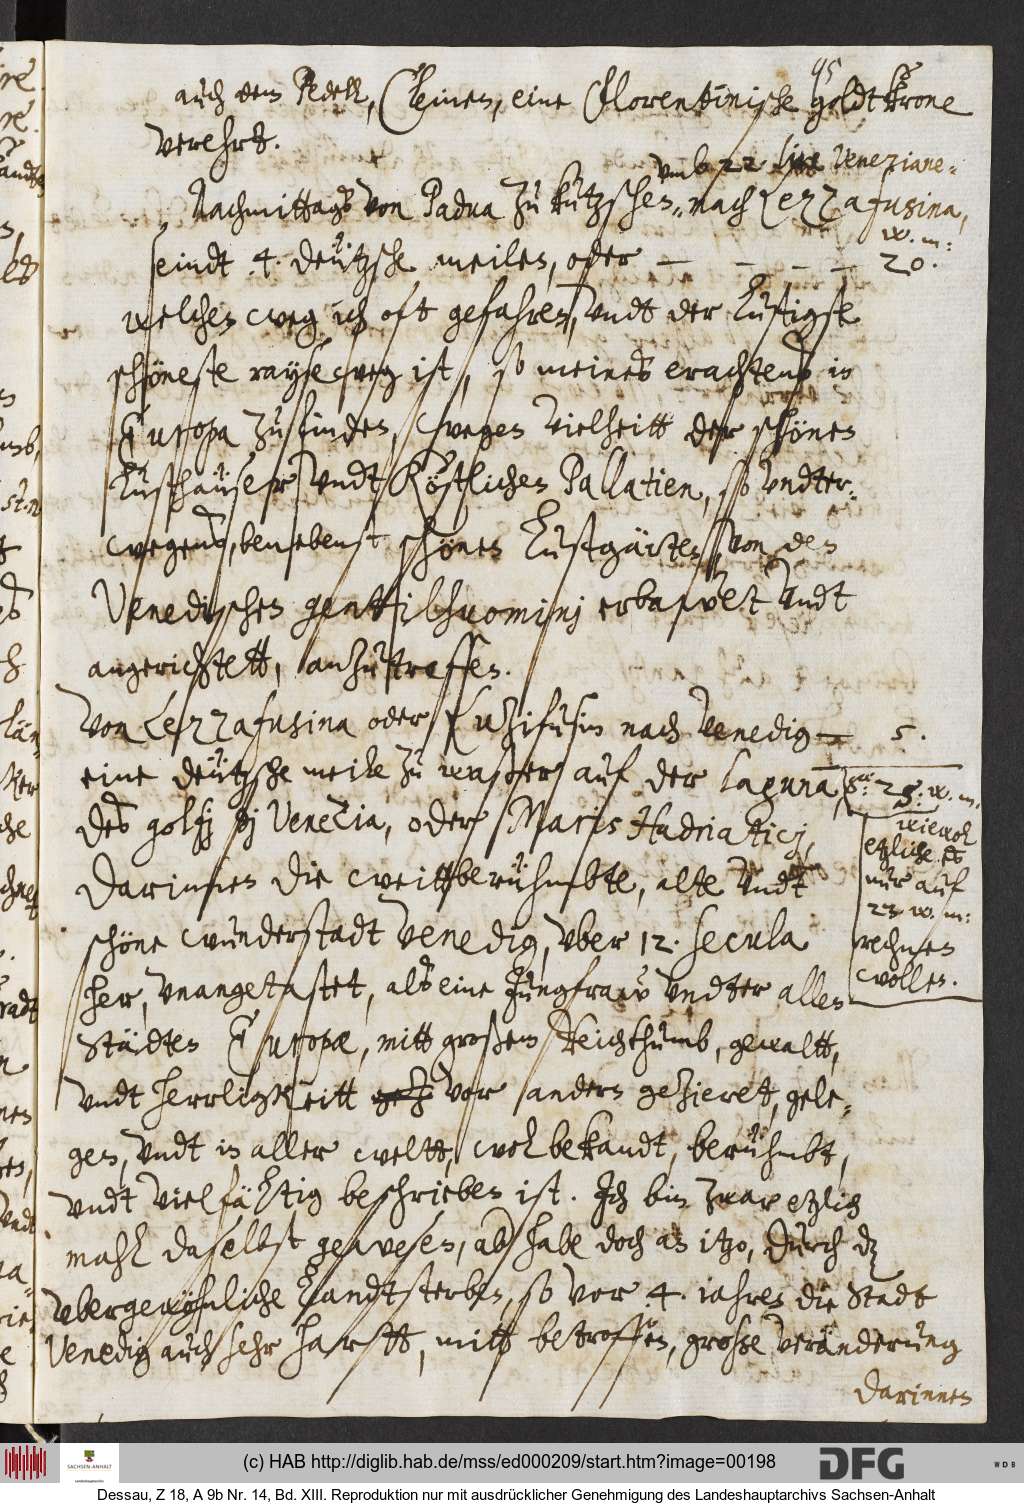 95
auch dem Pedell, Cleinen, eine Florentinische goldtkrone
verehrt.
umb 22 lire Veneziane„
Nachmittags von Padua zu kutzschen„ nach Lezzafusina,
w. m:
seindt 4. deützsche meilen, oder — — — — 20.
welchen weg ich oft gefahren, undt der lustigste
schöneste rayseweg ist, so meines erachtens in
Europa zufinden, wegen vielheitt der schönen
Lusthäuser undt köstlichen Pallatien, so undter„
wegens, benebenst schönen Lustgärten, von den
Venedischen genttilhuominj erbawet undt
angerichtett, anzutreffen.
Von Lezzafusina oder Luzifusin nach Venedig — 5.
eine deützsche meile zu wasser auf der laguna,
des golfj dj Venezia, oder Maris Hadriaticj,
Sa: 25. w. m.
wiewol
etzliche es
nur auf
23 w. m:
rechnen
wollen.
darinnen die weittberühmbte, alte undt
schöne wunderstadt Venedig, uber 12. secula
her, unangetastet, als eine Jungfraw undter allen
Städten Europæ, mitt großem Reichthumb, gewaltt,
undt herrligkeitt vor andern gezieret, gele„
gen, undt in aller weltt, wol bekandt, berühmbt,
undt vielfältig beschrieben ist. Ich bin zwar etzlich
mahl daselbst gewesen, ab habe doch an itzo, durch dz
ubergewöhnliche Landtsterben, so vor 4. iahren die Stadt
Venedig auch sehr hartt, mitt betroffen, große veränderung
darinnen
(c) HAB http://diglib.hab.de/mss/ed000209/start.htm?image=00198
SACHSEN-ANHALT
DFG
WDB
Dessau, Z 18, A 9b Nr. 14, Bd. XIII. Reproduktion nur mit ausdrücklicher Genehmigung des Landeshauptarchivs Sachsen-Anhalt